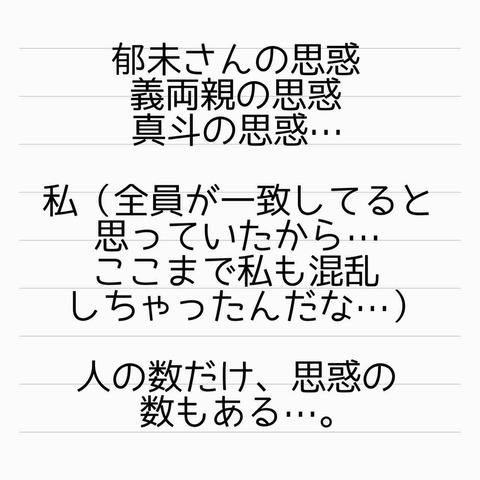 郁未さんの思惑
義両親の思惑
真斗の思惑…
私（全員が一致してると
思っていたから…
ここまで私も混乱
しちゃったんだな…）
人の数だけ、思惑の
数もある…。